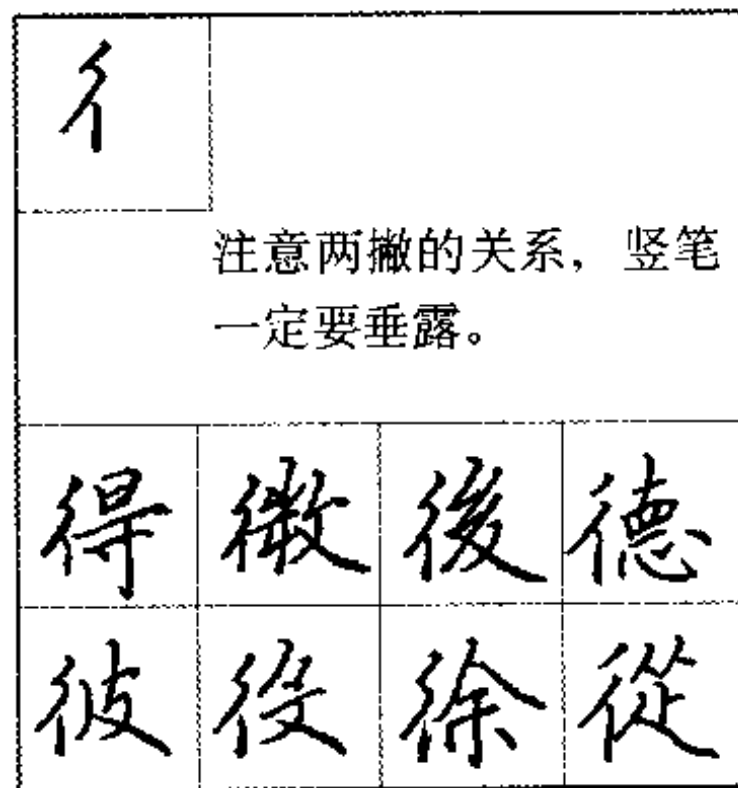 彳
注意两撇的关系，竖笔
一定要垂露。
得微後德
彼役徐從